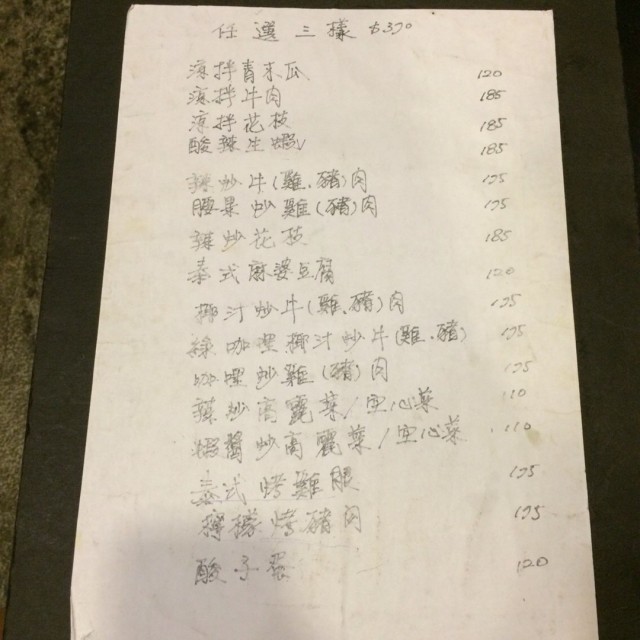 任選三樣 $370
涼拌青木瓜 120
涼拌牛肉 185
涼拌花枝 185
酸辣生蝦 185
辣炒牛(雞.豬)肉 175
腰果炒雞(豬)肉 175
辣炒花枝 185
泰式麻婆豆腐 120
椰汁炒牛(雞.豬)肉 175
綠咖哩椰汁炒牛(雞.豬) 175
咖哩炒雞(豬)肉 175
辣炒高麗菜/空心菜 110
蝦醬炒高麗菜/空心菜 110
泰式烤雞腿 175
檸檬烤豬肉 175
酸子 120